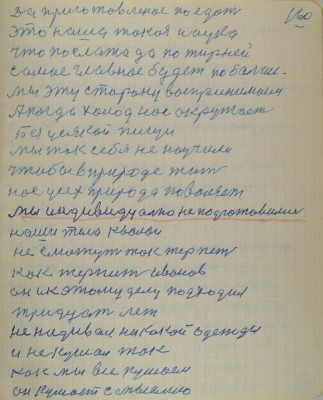 160
Да приготовленое поедат
Это наша такая наука
что послаже да по жирней
самое главное будет по больше.
мы эту сторону воспринимаем
А когда холод нас окружает
Без усякой пищи
мы так себя не научили
чтобы в природе жит
нас усех природа поволяет
мы индивидуално не подготовили
наши тела
не сможут так терпет
как терпит иванов
он и к этому делу подходил
тридцат лет
не надивал никакой одежды
и не кушал так
как мы все кушаем
он кушает с мыслию